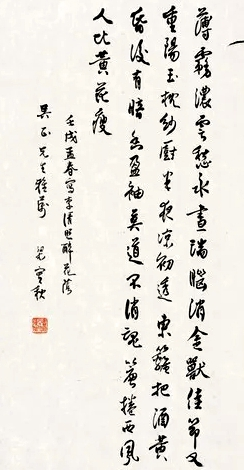 薄霧濃雲愁永晝瑞腦消金獸佳節又
重陽玉枕紗廚半夜涼初透東籬把酒黃
昏後有暗香盈袖莫道不消魂簾捲西風
人比黃花瘦
壬戌孟春寫李清照醉花陰
兄雅 梁實秋